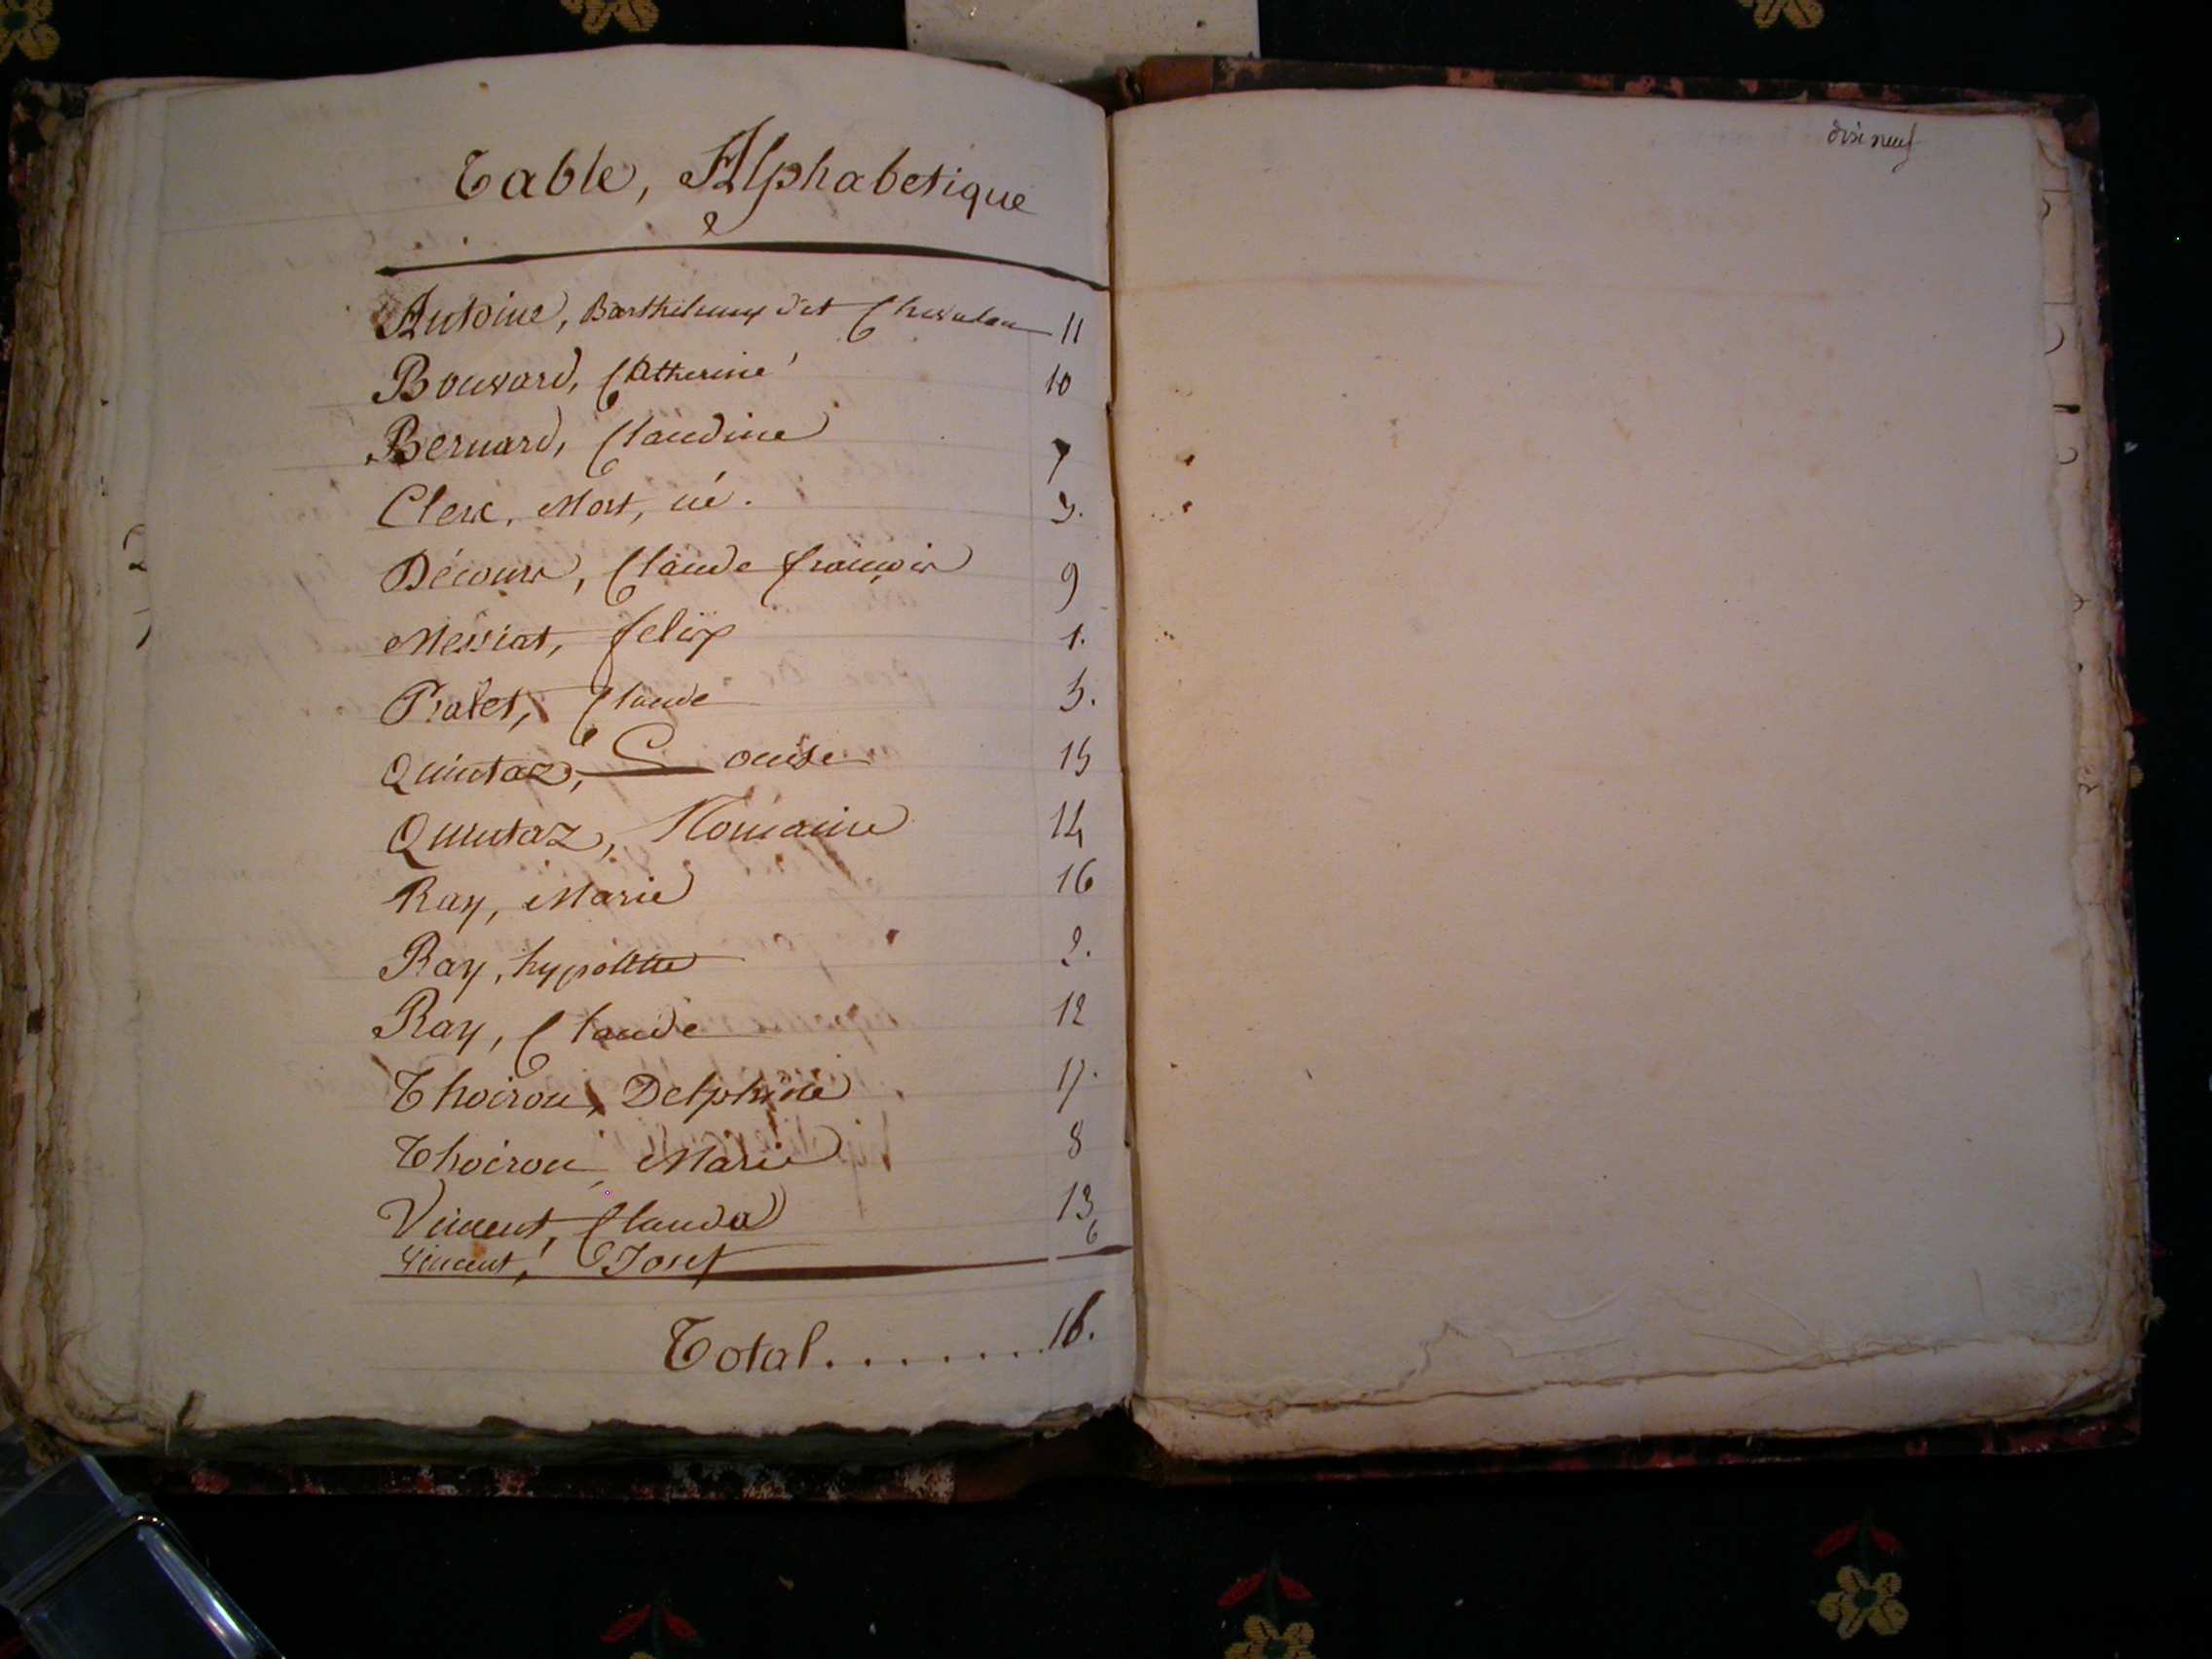 Table, Alphabetique
Antoine, Barthelemy dit Chevalau 11
Bouvard, Catherine 10
Bernard, Claudine 7
Clerc, Mort, né. 3.
Décours, Claude françois 9
Messiat, felix 1.
Pralet, Claude 5.
Quintaz, Louise 15
Quintaz, Romaine 14
Ray, Marie 16
Ray, hypolitte 2.
Ray, Claude 12
Thoiron, Delphine 17.
Thoiron, Marie 8
Vincent, Clauda 13
Vincent, Josef 6
Total........16.
dixe neuf